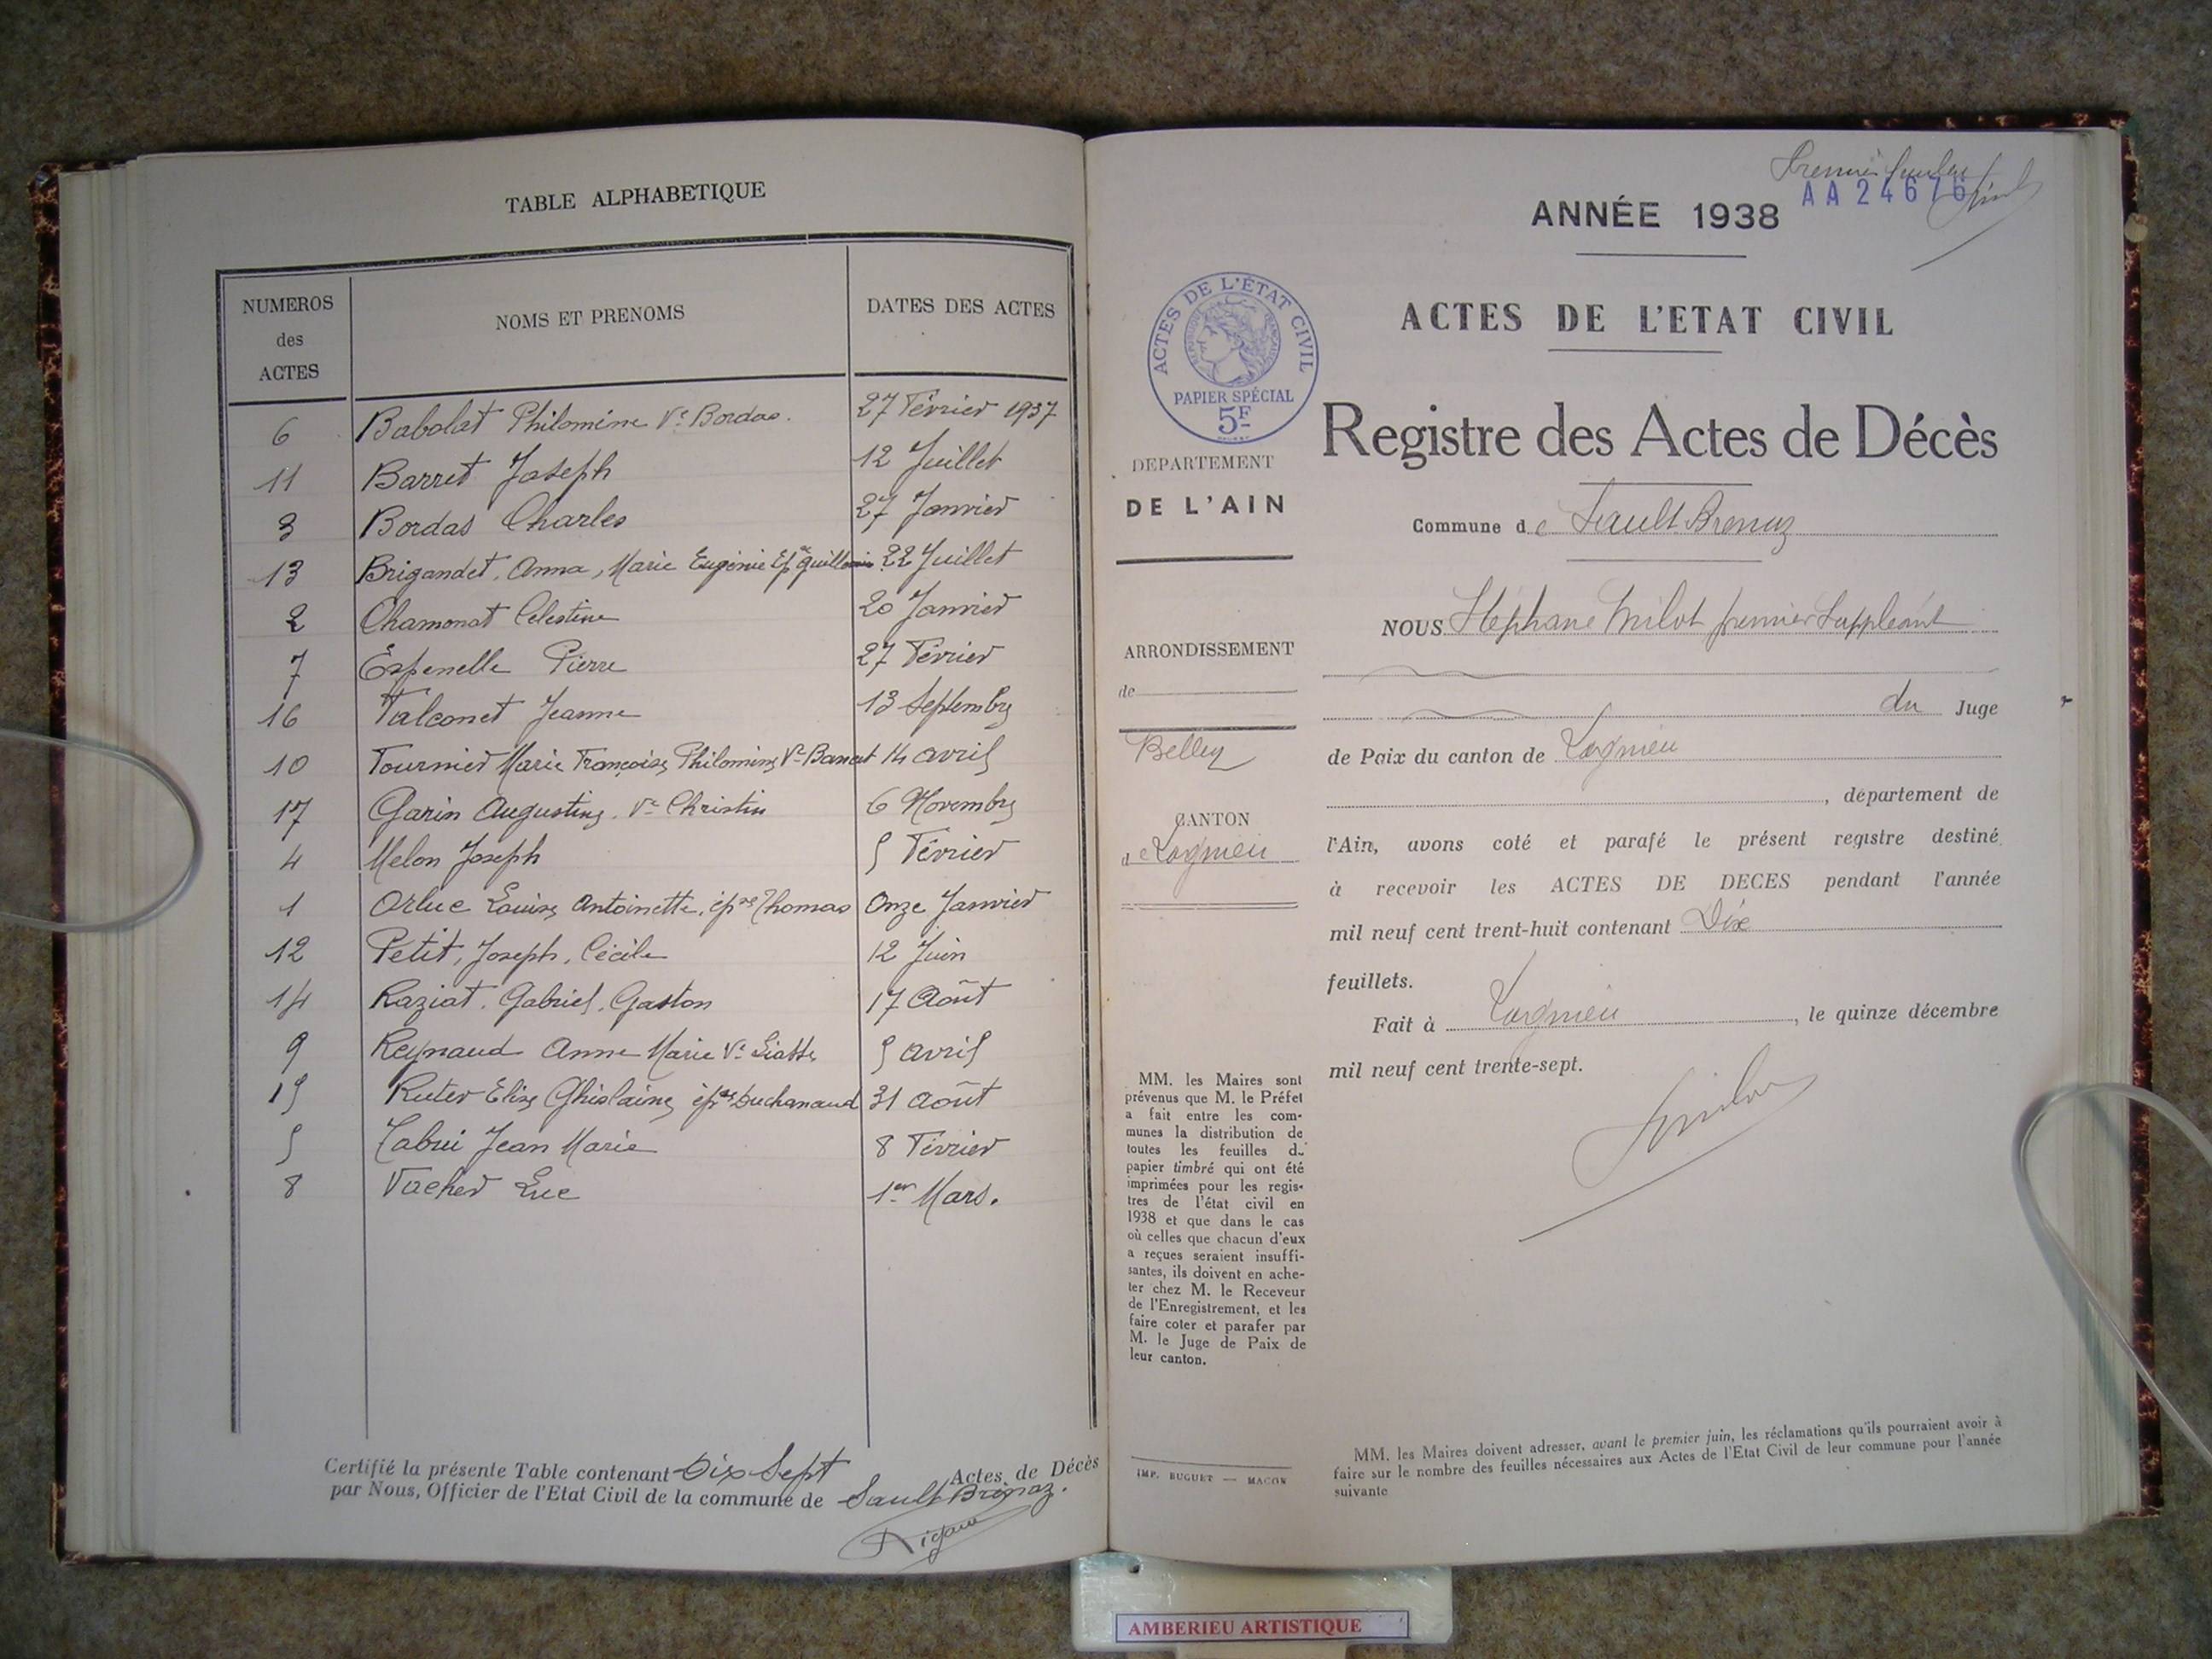 TABLE ALPHABETIQUE
NUMEROS
des
ACTES
NOMS ET PRENOMS
DATES DES ACTES
6 Babolat Philomène Ve Bordas. 27 Février 1937
11 Barret Joseph 12 Juillet
3 Bordas Charles 27 Janvier
13 Brigandet, Anna, Marie Eugénie Epse 22 Juillet
2 Chamonat Célestine 20 Janvier
7 Espenelle Pierre 27 Février
16 Falconet Jeanne 13 Septembre
10 Fournier Marie Françoise Philomine Ve 14 avril
17 Garin Augustine. Ve Christin 6 Novembre
4 Melon Joseph 5 Février
1 Orluc Louise Antoinette, épse Thomas Onze Janvier
12 Petit, Joseph, Cécile 12 Juin
14 Raziat. Gabriel, Gaston 17 Août
9 Reynaud Anne Marie Ve 5 avril
15 Ruter Elise Ghislaine épse Duchanaud 31 août
5 Tabui Jean Marie 8 Février
8 Vacher Luc 1er Mars.
Certifié la présente Table contenant Dix Sept Actes de Décès
par Nous, Officier de l'Etat Civil de la commune de Sault Brenaz.
Premier feuillet
AA 24676
ANNÉE 1938
ACTES DE L'ÉTAT CIVIL
RÉPUBLIQUE FRANÇAISE
PAPIER SPÉCIAL
5F
ACTES DE L'ETAT CIVIL
Registre des Actes de Décès
DEPARTEMENT
DE L'AIN
Commune de Sault-Brenaz
ARRONDISSEMENT
de
Belley
CANTON
de Lagnieu
NOUS Stéphane Milot premier Suppléant
du Juge
de Paix du canton de Lagnieu
, département de
l'Ain, avons coté et parafé le présent registre destiné
à recevoir les ACTES DE DECES pendant l'année
mil neuf cent trent-huit contenant Dix
feuillets.
Fait à Lagnieu, le quinze décembre
mil neuf cent trente-sept.
MM. les Maires sont
prévenus que M. le Préfet
a fait entre les com-
munes la distribution de
toutes les feuilles de
papier timbré qui ont été
imprimées pour les regis-
tres de l'état civil en
1938 et que dans le cas
où celles que chacun d'eux
a reçues seraient insuffi-
santes, ils doivent en ache-
ter chez M. le Receveur
de l'Enregistrement, et les
faire coter et parafer par
M. le Juge de Paix de
leur canton.
IMP. BUGUET — MACON
MM. les Maires doivent adresser, avant le premier juin, les réclamations qu'ils pourraient avoir à
faire sur le nombre des feuilles nécessaires aux Actes de l'Etat Civil de leur commune pour l'année
suivante
AMBERIEU ARTISTIQUE